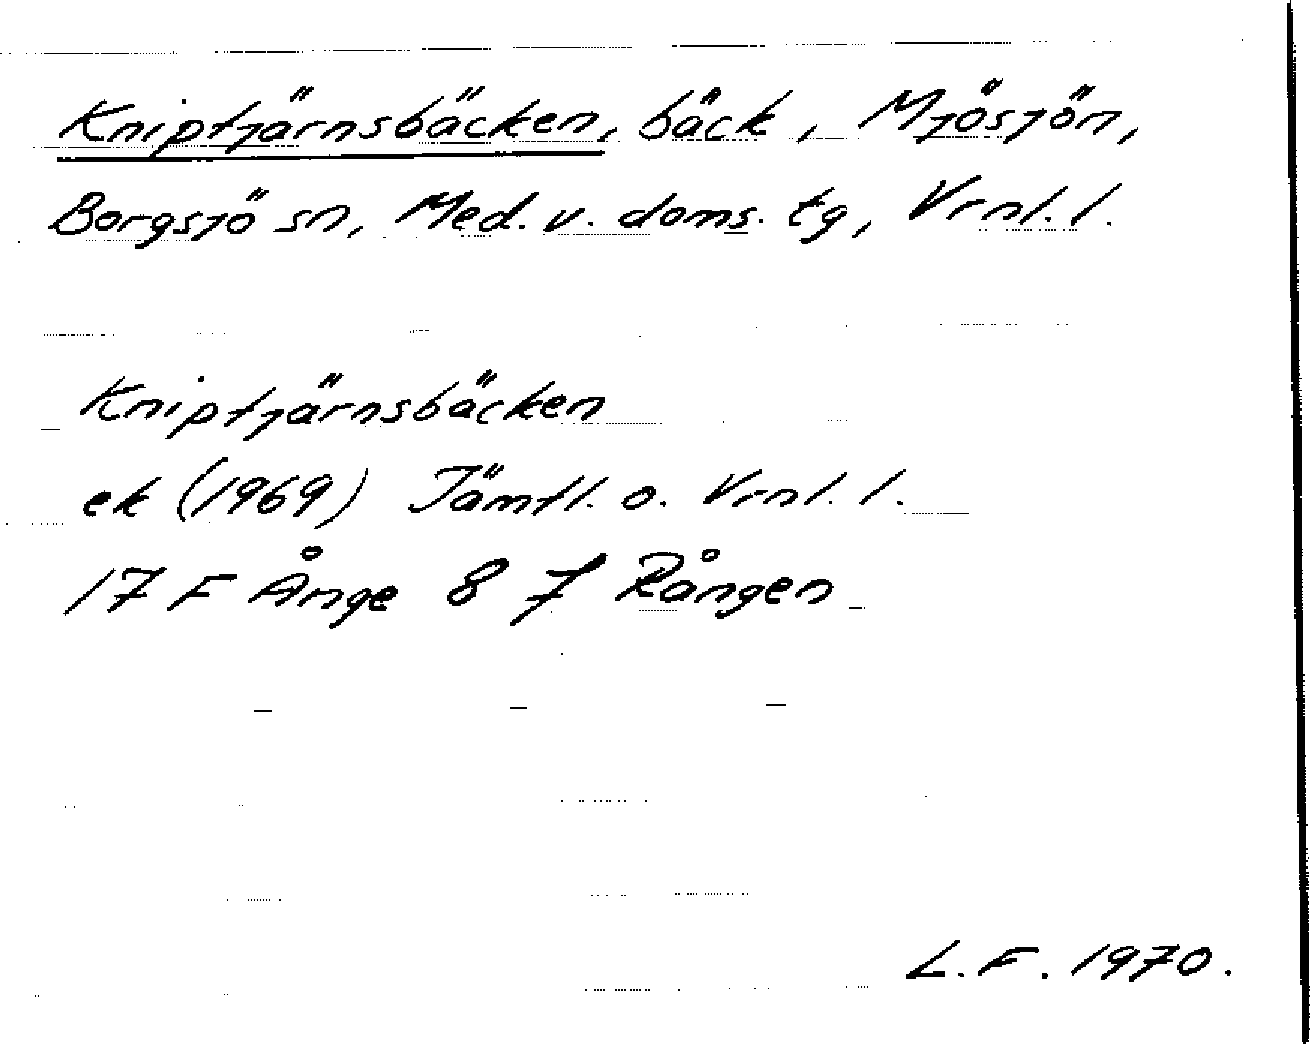 Kniptjärnsbäcken, bäck, Mjösjön,
Borgsjö sn, Med. v. doms. tg, Vrnl. l.
Kniptjärnsbäcken
ek (1969) Jämtl. o. Vrnl. l.
17 F Ånge 8 7 Rången
L. F. 1970.